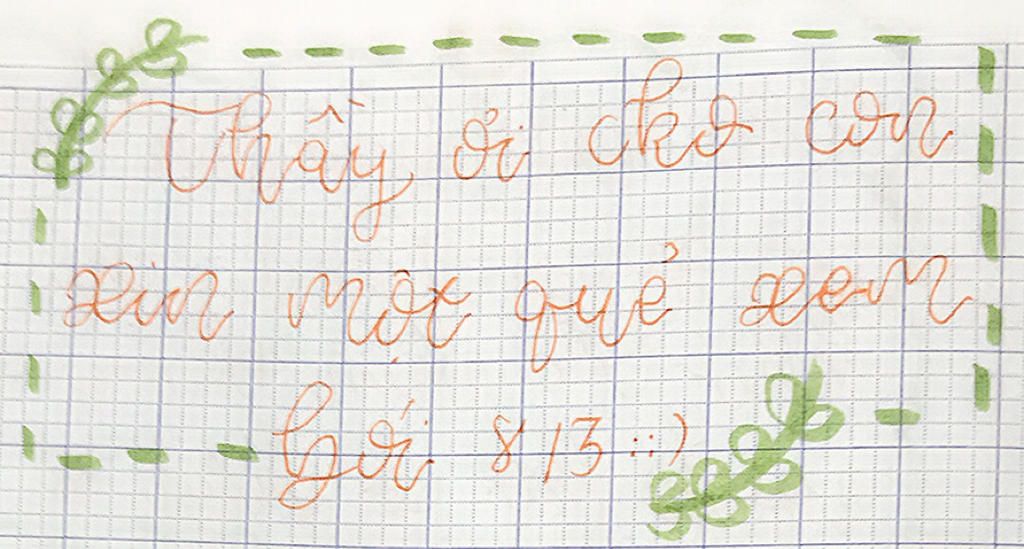 Thầy ơi cho con
xin một quẻ xem
bói 8/3 ::)